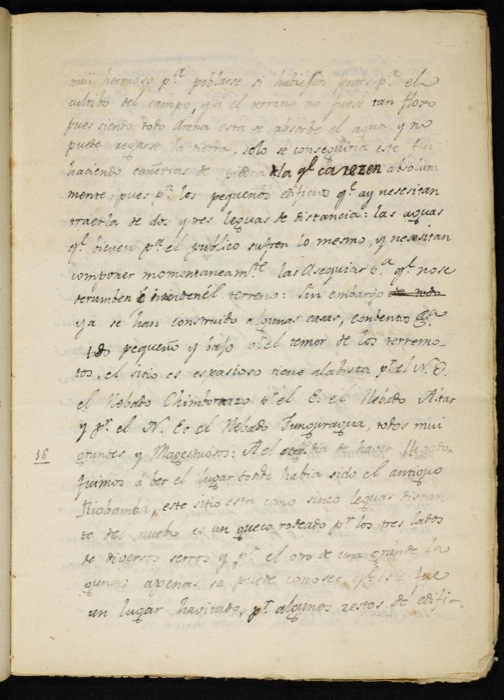 mui hermoso p.ª poblarse si hubiesen fentes p.ª el
cultibo del campo, y si el terreno no fuese tan floxo
pues siendo todo Arena esta se absorbe el agua y no
puede regarse la tierra. solo se conseguiria este fin
haciendo cañerias de piedra de la q.l carezen absoluta
mente pues p.ª los pequeños edificios q.e ay nesesitan
traerla de dos y tres leguas de distancia: las aguas
q.e tienen p.ª el publico sufren lo mesmo, y nesesitan
componer momentaneam.te las Asequias p.ª q.e no se
derumben è inunden el terreno: Sin embargo
ya se han construido algunas casas, conbento
todo pequeño y bajo p.r el temor de los terremo-
tos, el sitio es espasioso tiene a la bista p.r el N. O.
el Nebado Chimborazo p.r el E. el Nebado Altar
y p.r el N. E. el Nebado Tunguragua, todos mui
grandes y Magestuosos: Al seg.do dia de haver llegado
16 fuimos á ber el lugar donde habia sido el antiguo
Riobamba, este sitio esta como sinco leguas distan
te del nuebo es un gueco rodeado p.r los tres lados
de diversos serros y p.r el otro de una grande la
guna: apenas se puede conoser q.e este fue
un lugar havitado, p.r algunos restos de edifi-